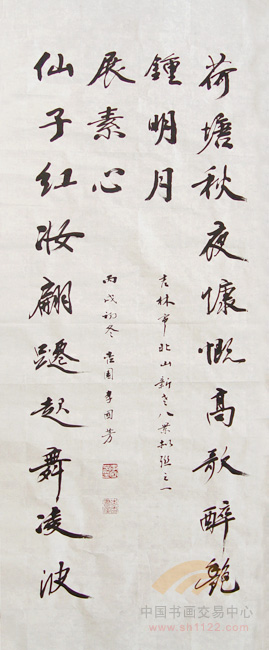 荷塘秋夜慷慨高歌醉
鍾明月
吉林市北山新老八景拟联之一
丙戌初冬
展素心
仙子红妆翩躚起舞凌波
中国书画交易中心
www.sh1122.com